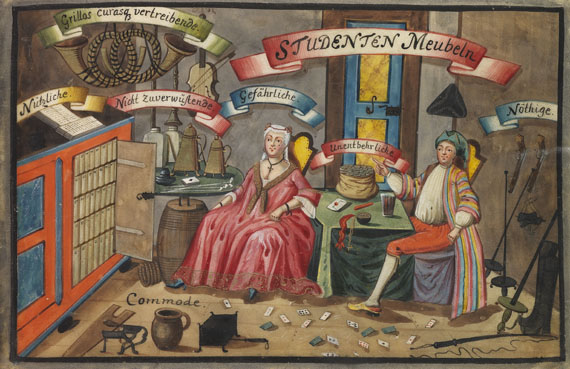 Grillos curasq vertreibende.
STUDENTEN Meubeln
Nützliche.
Nicht Zuverwüstende
Gefährliche
Unentbehrliche
Nöthige.
Commode.